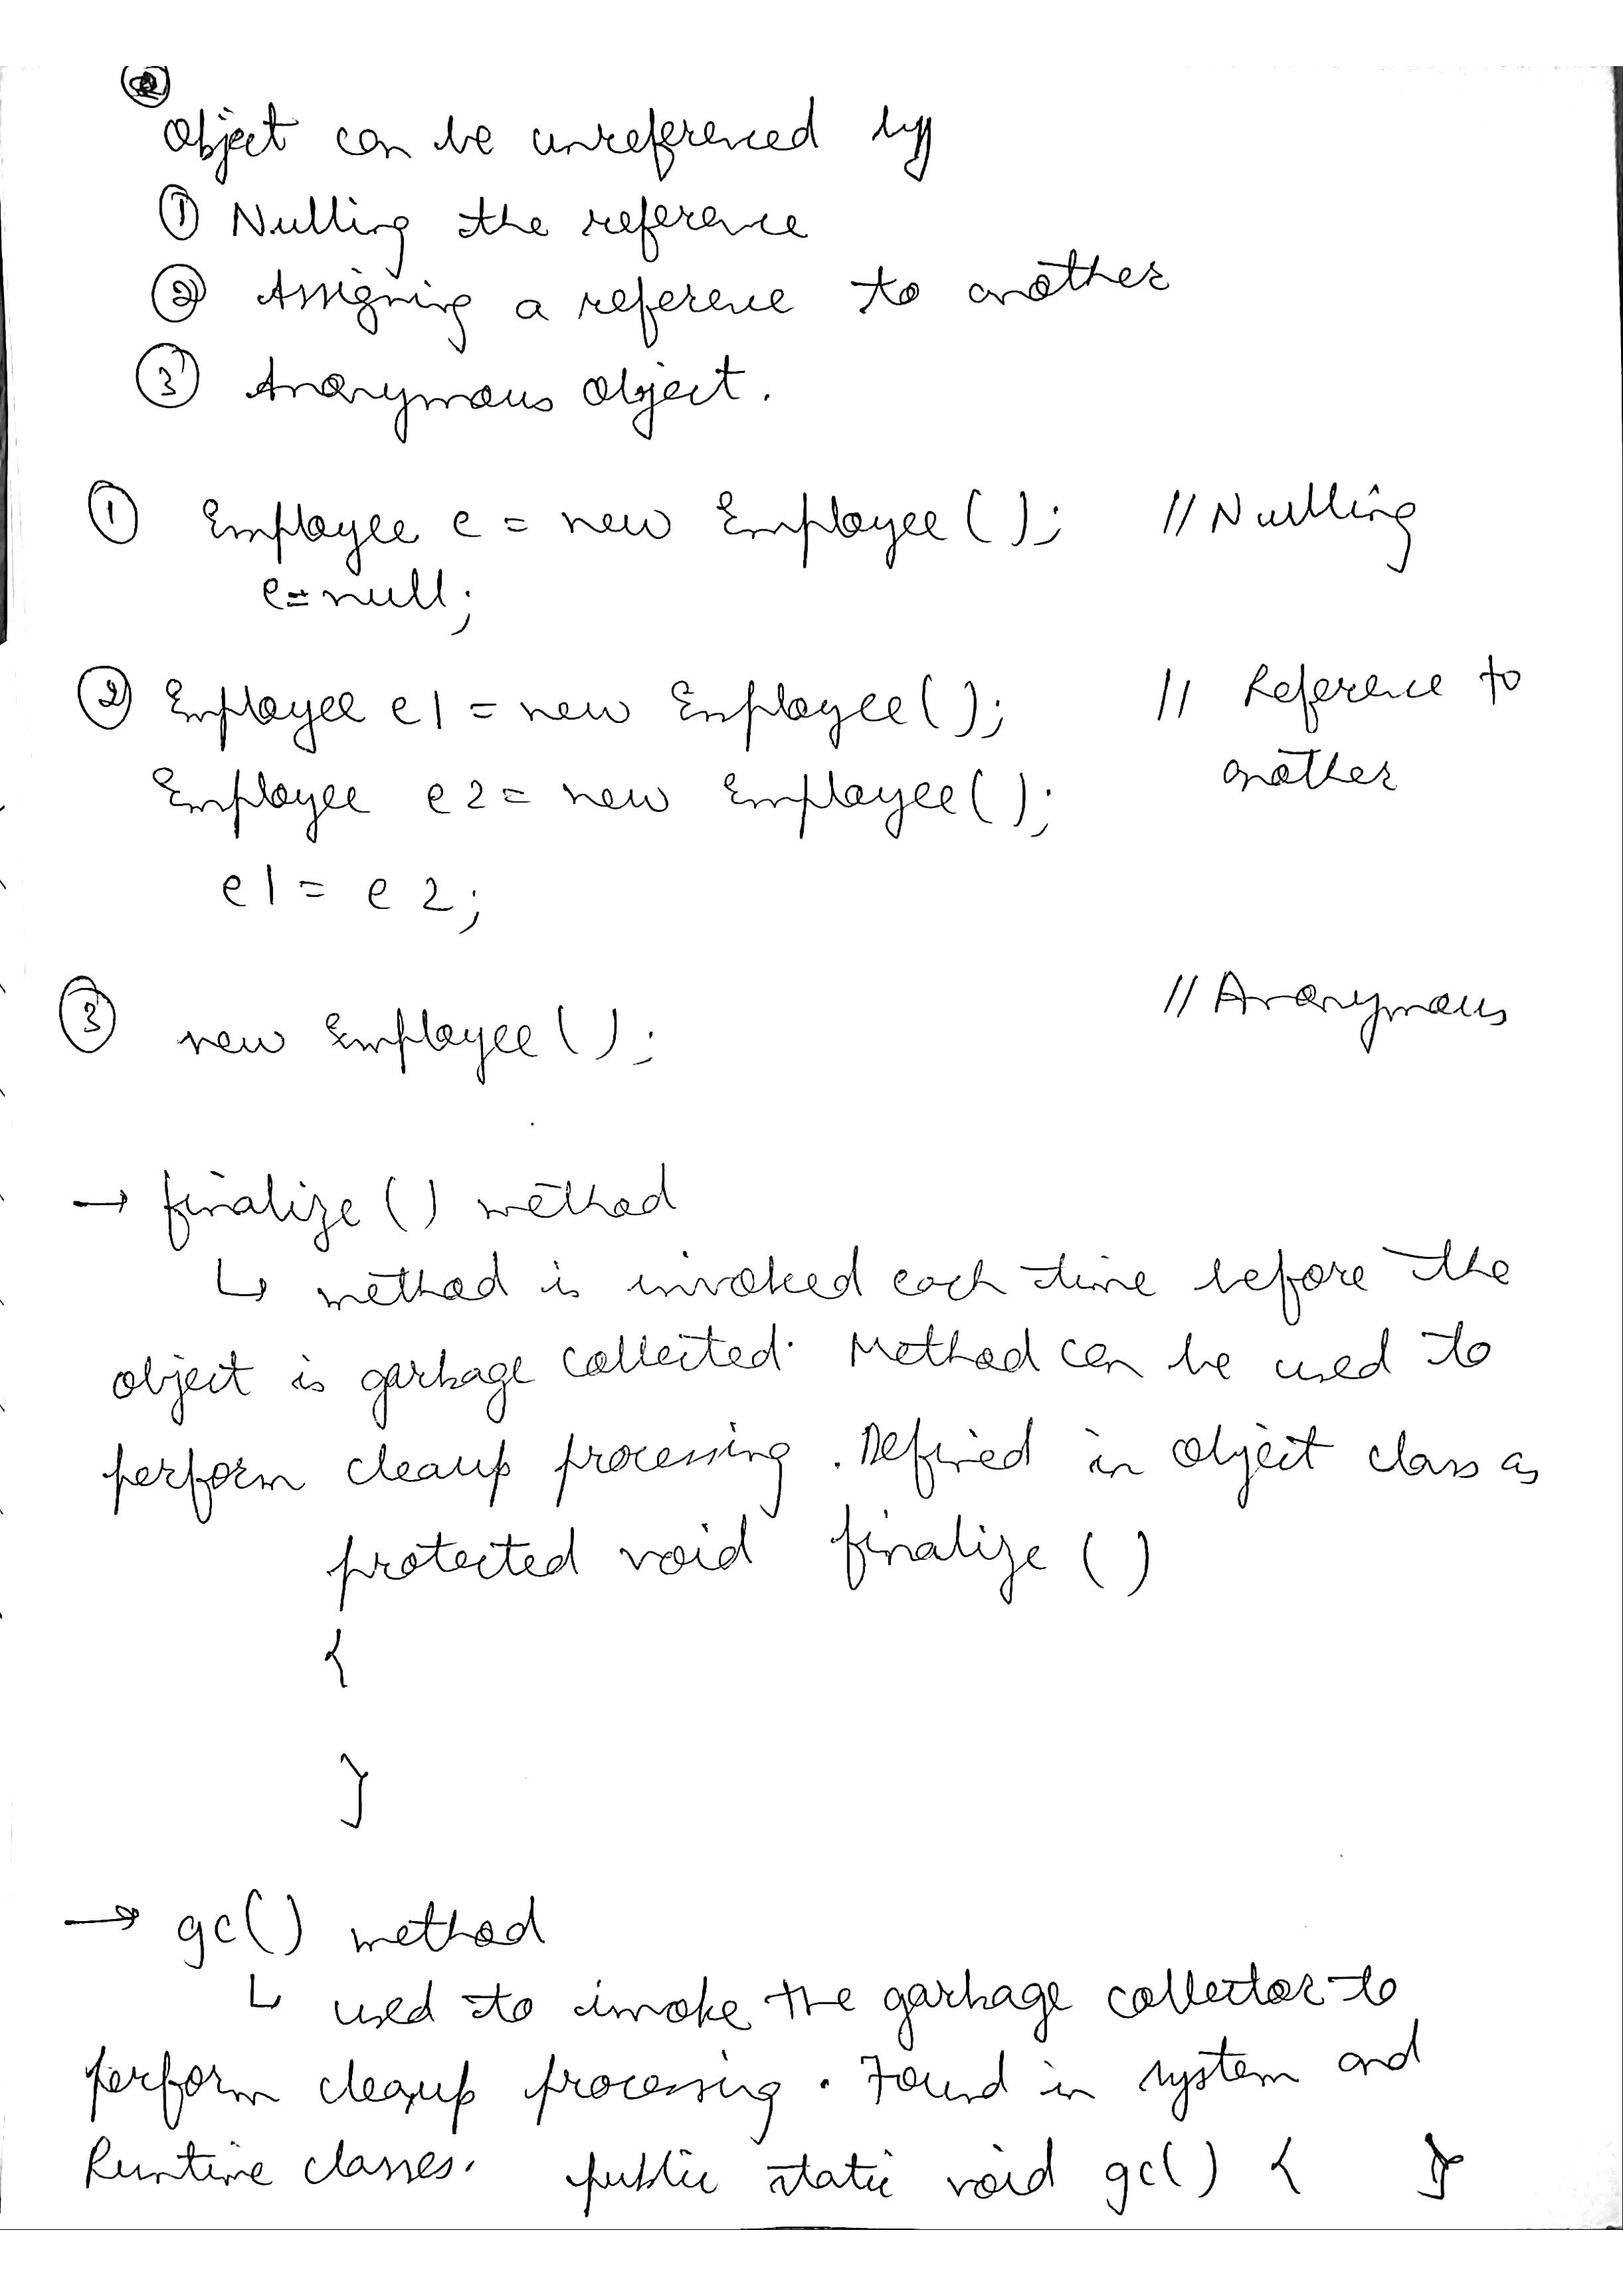 Object can be unreferenced by
① Nulling the reference
② Assigning a reference to another
③ Anonymous object.
① Employee e = new Employee(); // Nulling
e=null;
② Employee e1 = new Employee(); // Reference to
another
Employee e2 = new Employee();
e1 = e2;
③ new Employee(); // Anonymous
→ finalize() method
↳ method is invoked each time before the
object is garbage collected. Method can be used to
perform cleanup processing. Defined in object class as
protected void finalize()
{
}
→ gc() method
↳ used to invoke the garbage collector to
perform cleanup processing. Found in system and
Runtime classes. public static void gc() { }